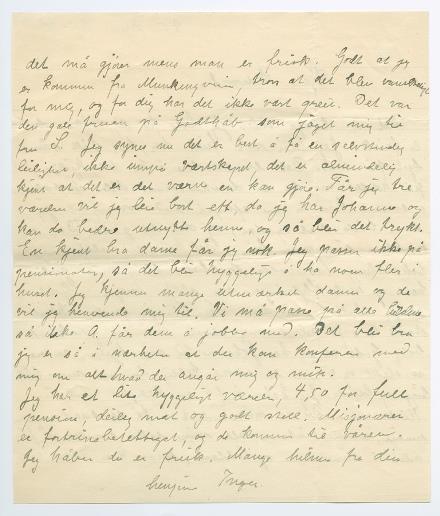 det må gjøres mens man er frisk. Godt at jeg
er kommen fra Munkengveien, tross at det blev vanskelig
for meg, og for dig har det ikke vært greit. Det var
den gale fruen på Godthåb som jaget mig til
fru S. Jeg synes nu det er best å få en selvstendig
leilighet, ikke innpå vertskapet, det er almindelig
kjent at det er det værste en kan gjøre. Får jeg tre
værelser vil jeg leie bort ett da jeg har Johanne og
kan da bedre utnytte henne, og så blir det trykt.
En kjent bra dame får jeg nok. Jeg passer ikke på
pensionater, så det blir hyggelig å ha noen flere i
huset. Jeg kjenner mange utmerkede damer og de
vil jeg henvende mig til. Vi må passe på alle
så ikke A. får dem å jobbe med. Det blir bra
jeg er så i nærheten at du kan konferere med
mig om alt hvad der angår mig og mitt.
Jeg har et lite hyggelig værelse, 4,50 for full
pension, deilig mat og godt stell. Misjonærer
er fortrinsberettiget, og de kommer til våren.
Jeg håber du er frisk. Mange hilsner fra din
hengivne Inger